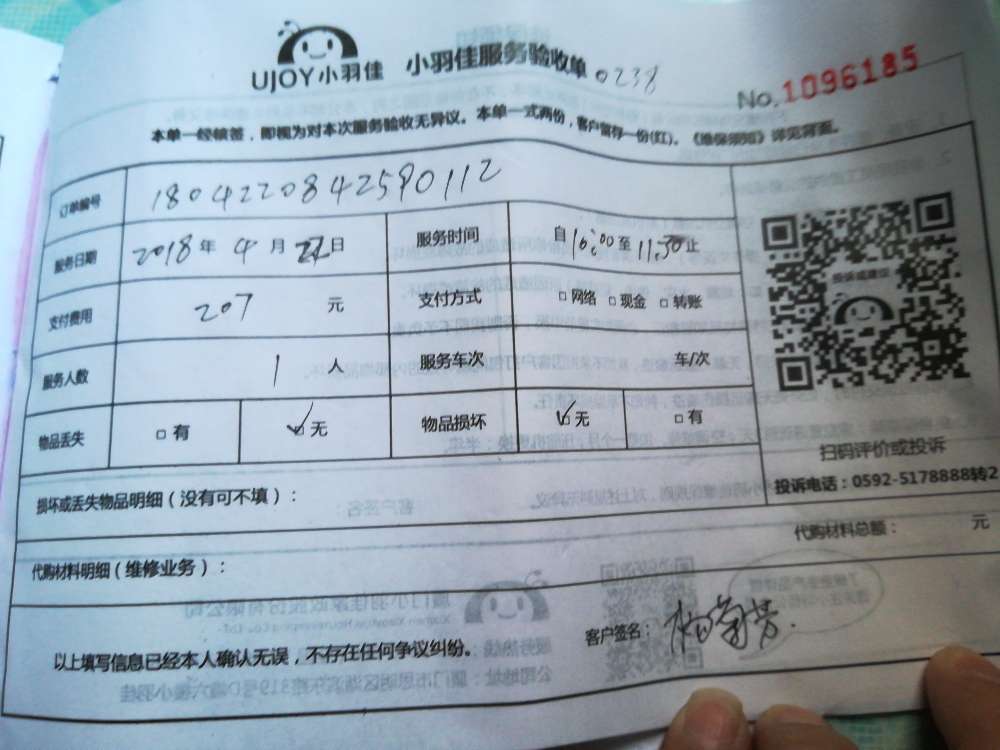 UJOY小羽佳 小羽佳服务验收单 0238
No.1096185
本单一经核签，即视为对本次服务验收无异议。本单一式两份，客户留存一份(红)。《维保须知》详见背面。
订单编号 1804220842590112
服务日期 2018年4月22日 服务时间 自10:00至11:30止
支付费用 207元 支付方式 □网络 □现金 □转账
服务人数 1人 服务车次 车/次
物品丢失 □有 ☑无 物品损坏 ☑无 □有
投诉或建议
扫码评价或投诉
投诉电话：0592-5178888转2
损坏或丢失物品明细（没有可不填）：
代购材料总额： 元
代购材料明细（维修业务）：
客户签名：
以上填写信息已经本人确认无误，不存在任何争议纠纷。